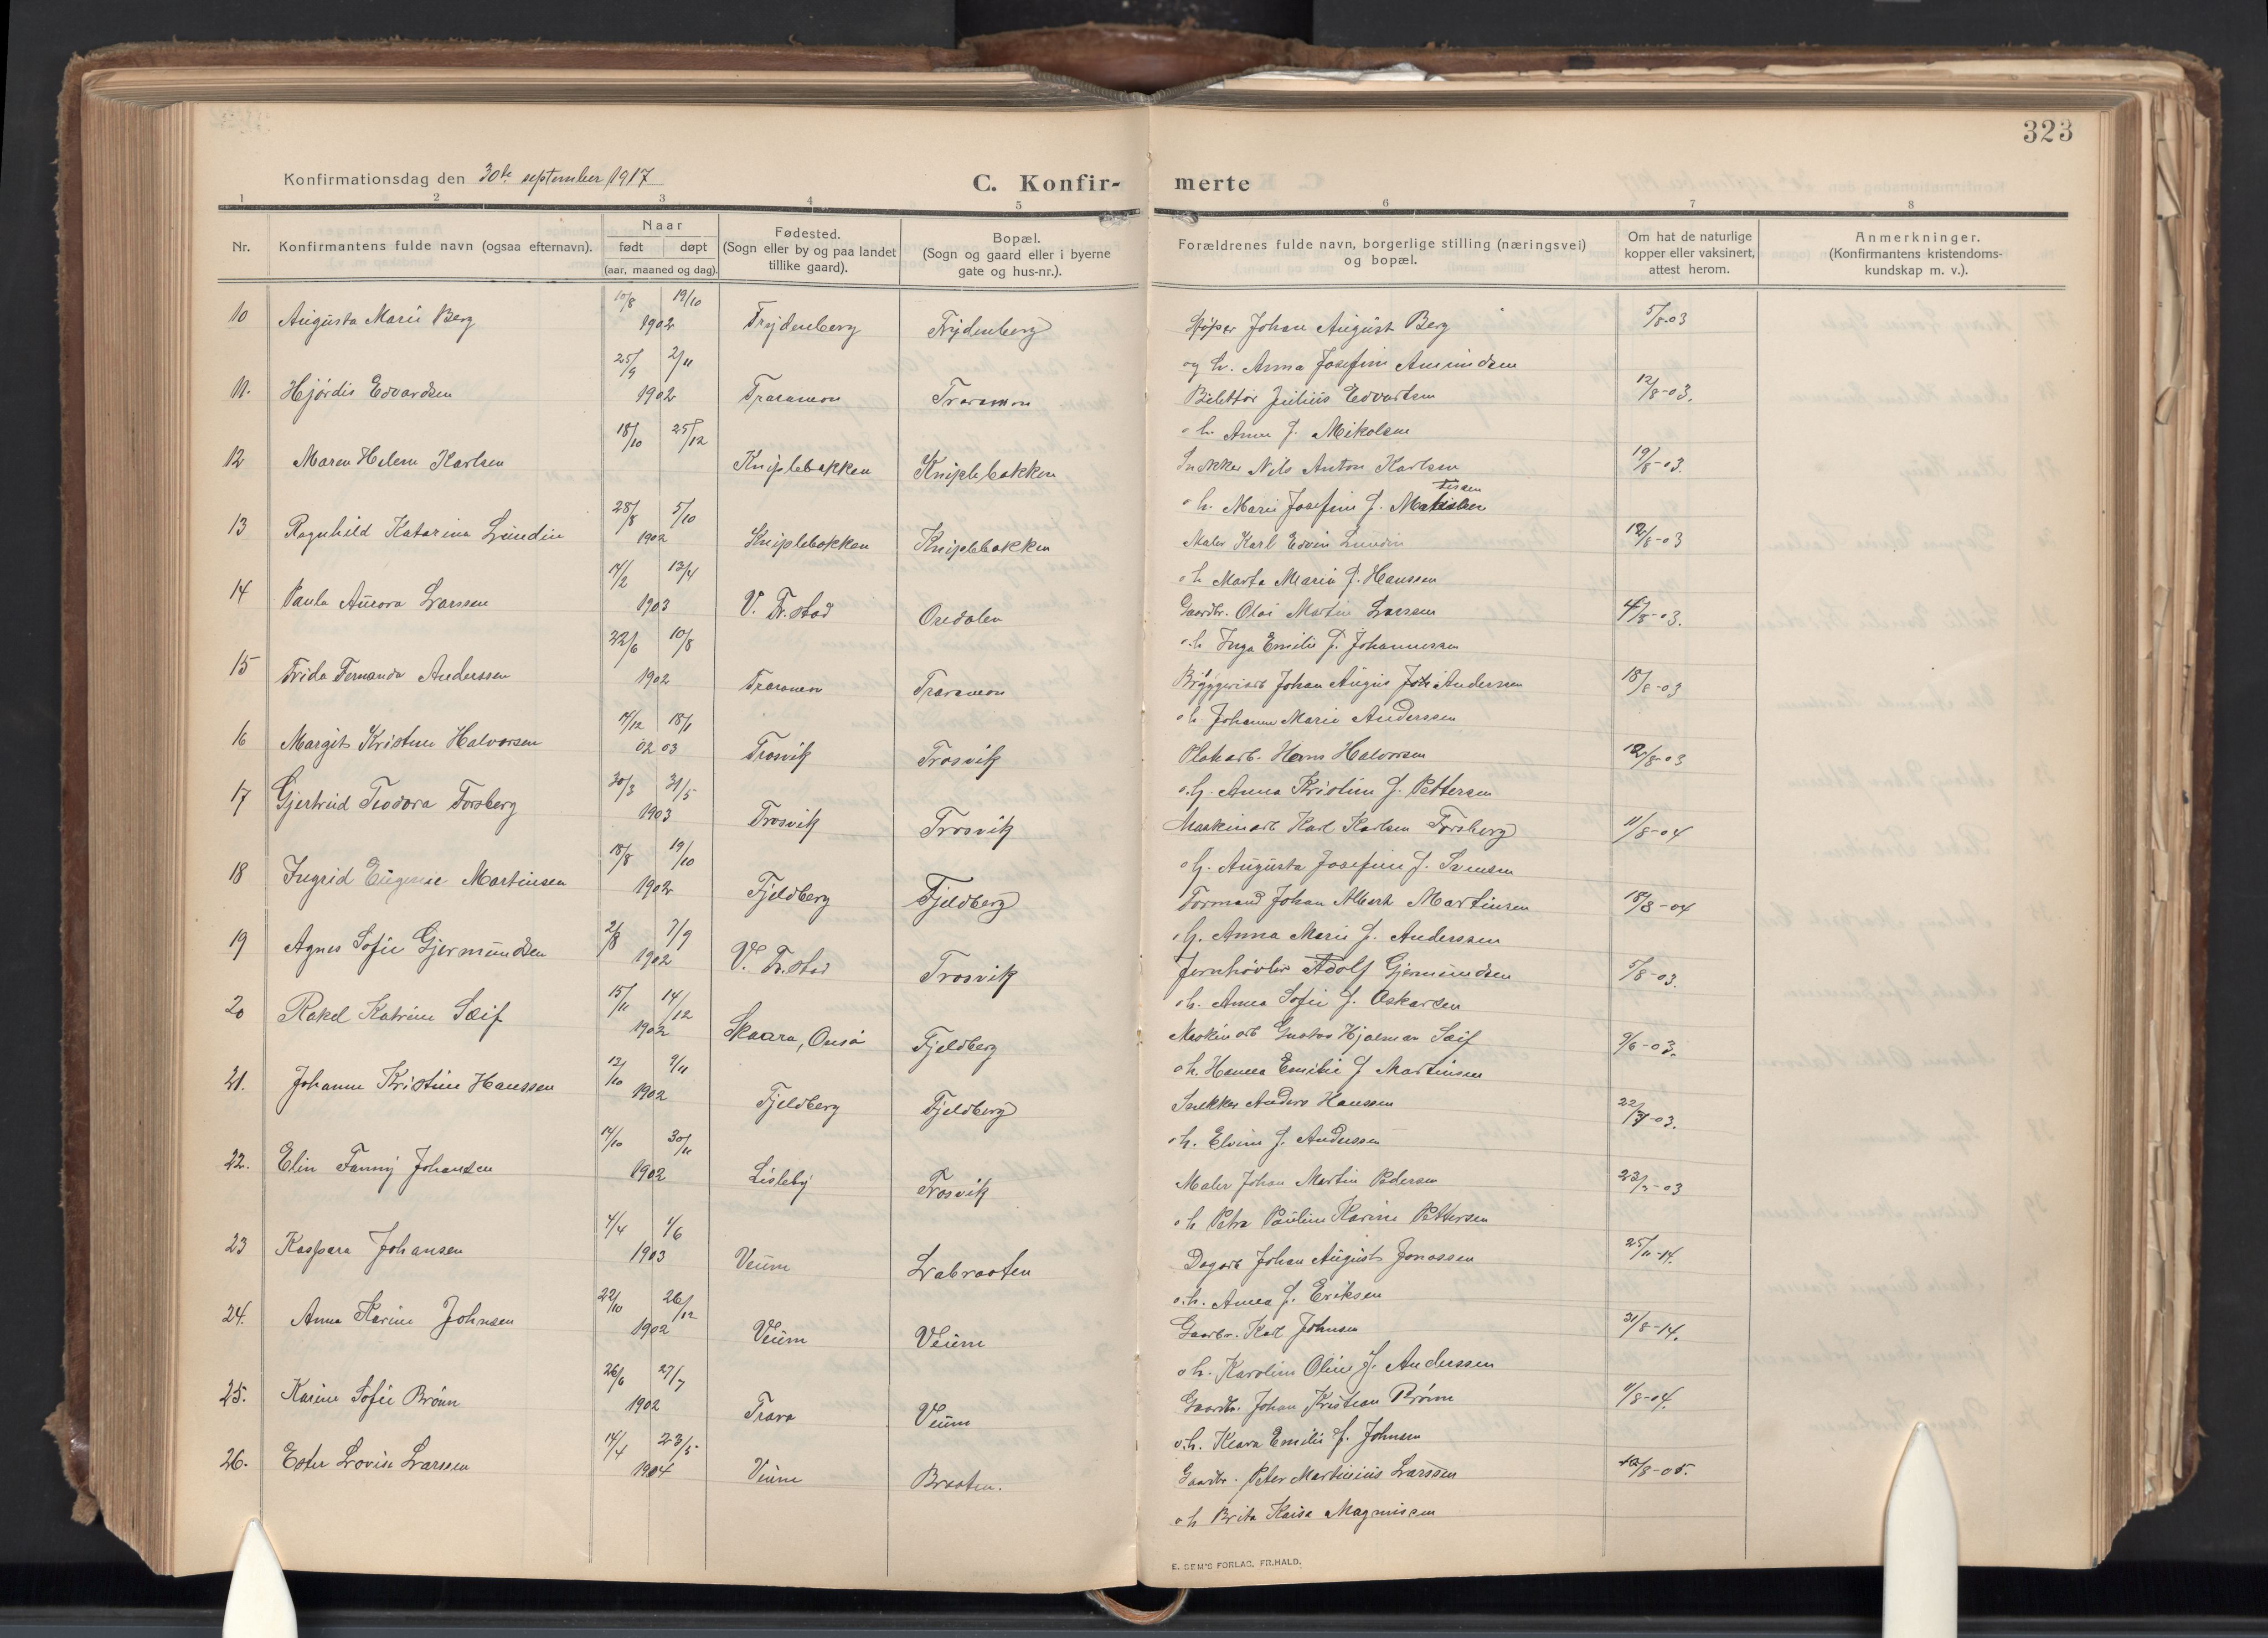 323
Konfirmationsdag den 30te september 1917
C. Konfir- merte
1 2 3 4 5 6 7 8
Nr.
Konfirmantens fulde navn (ogsaa efternavn).
Naar
født døpt
(aar, maaned og dag).
Fødested.
(Sogn eller by og paa landet
tillike gaard).
Bopæl.
(Sogn og gaard eller i byerne
gate og hus-nr.).
Forældrenes fulde navn, borgerlige stilling (næringsvei)
og bopæl.
Om hat de naturlige
kopper eller vaksinert,
attest herom.
Anmerkninger.
(Konfirmantens kristendoms-
kundskap m. v.).
10/8 19/10
10 Augusta Marie Berg 1902 Frydenberg Frydenberg Støper Johan August Berg 5/8-03
25/9 2/11 og h. Anna Josefine Amundsen
11. Hjørdis Edvardsen 1902 Traramon Traramon Julius Edvardsen 12/8-03.
18/10 25/12 o h. Anna J. Mikolsen
12 Maren Helene Karlsen Kniplebakken Kniplebakken Snekker Nils Anton Karlsen 19/8-03.
28/8 5/10 o h. Marie Josefine J.
13 Ragnhild Katarina Lundin 1902 Kniplebakken Kniplebakken Maler Karl Edvin Lundin 12/8-03
14/2 13/4 o h Marta Marie J. Hanssen
14 Paula Aurora Larssen 1903 V. Fr.stad Oredalen Gaardbr. Olai Martin Larssen 4/8-03.
22/6 10/8 o.h Inga Emilie J. Johannessen
15 Frida Fernanda Anderssen 1902 Traramon Traramon Bryggeriarb Johan August Anderssen 18/8-03
14/12 18/1 o h. Johanne Marie Anderssen
16 Margit Kristine Halvorsen 02 03 Trosvik Trosvik Plankarb. Hans Halvorsen 12/8-03
30/3 31/5 o.h. Anna Kristine J. Pettersen
17 Gjertrud Teodora Forsberg 1903 Trosvik Trosvik Maskinarb Karl Karlsen Forsberg 11/8-04
18/8 19/10 o h. Augusta Josefine J. Svensen
18 Ingrid Eugenie Martinsen 1902 Fjeldberg Fjeldberg Formand Johan Albert Martinsen 18/8-04
2/8 7/9 o h. Anna Marie J. Anderssen
19 Agnes Sofie Gjermundsen 1902 V. Fr.stad Trosvik Jernhøvler Adolf Gjermundsen 5/8-03.
15/11 14/12 o h. Anna Sofie J. Oskarsen
20 Rakel Katrine Sæif 1902 Skaara, Onsø Fjeldberg Maskinarb Gustav Hjalmar Sæif 9/6-03.
12/10 9/11 o h. Hanna Emilie J Martinsen
21. Johanne Kristine Hanssen 1902 Fjeldberg Fjeldberg Snekker Anders Hanssen 22/7-03.
14/10 30/11 o h. Elvine J. Anderssen
22. Elin Fanny Johansen 1902 Lisleby Trosvik Maler Johan Martin Pedersen 23/7-03
4/4 1/6 o h Petra Pauline Karine Pettersen
23 Kaspara Johansen 1903 Veum Labraaten Dagarb Johan August Jonassen 25/11-14.
22/10 26/12 o.h. Anna J. Eriksen
24. Anna Karine Johnsen 1902 Veum Veum Gaardbr. Karl Johnsen 31/8-14.
26/6 27/7 o h. Karoline Oline J. Anderssen
25. Karine Sofie Brønn 1902 Trara Veum Gaardbr. Johan Kristian Brønn 11/8-04.
14/4 23/5 o.h. Klara Emilie J. Johnsen
26. Ester Lovise Larssen 1904 Veum Braaten. Gaardbr. Peter Martinius Larssen 12/8-05.
o h Brita Kaisa Magnussen
E. SEM'S FORLAG, FR.HALD.